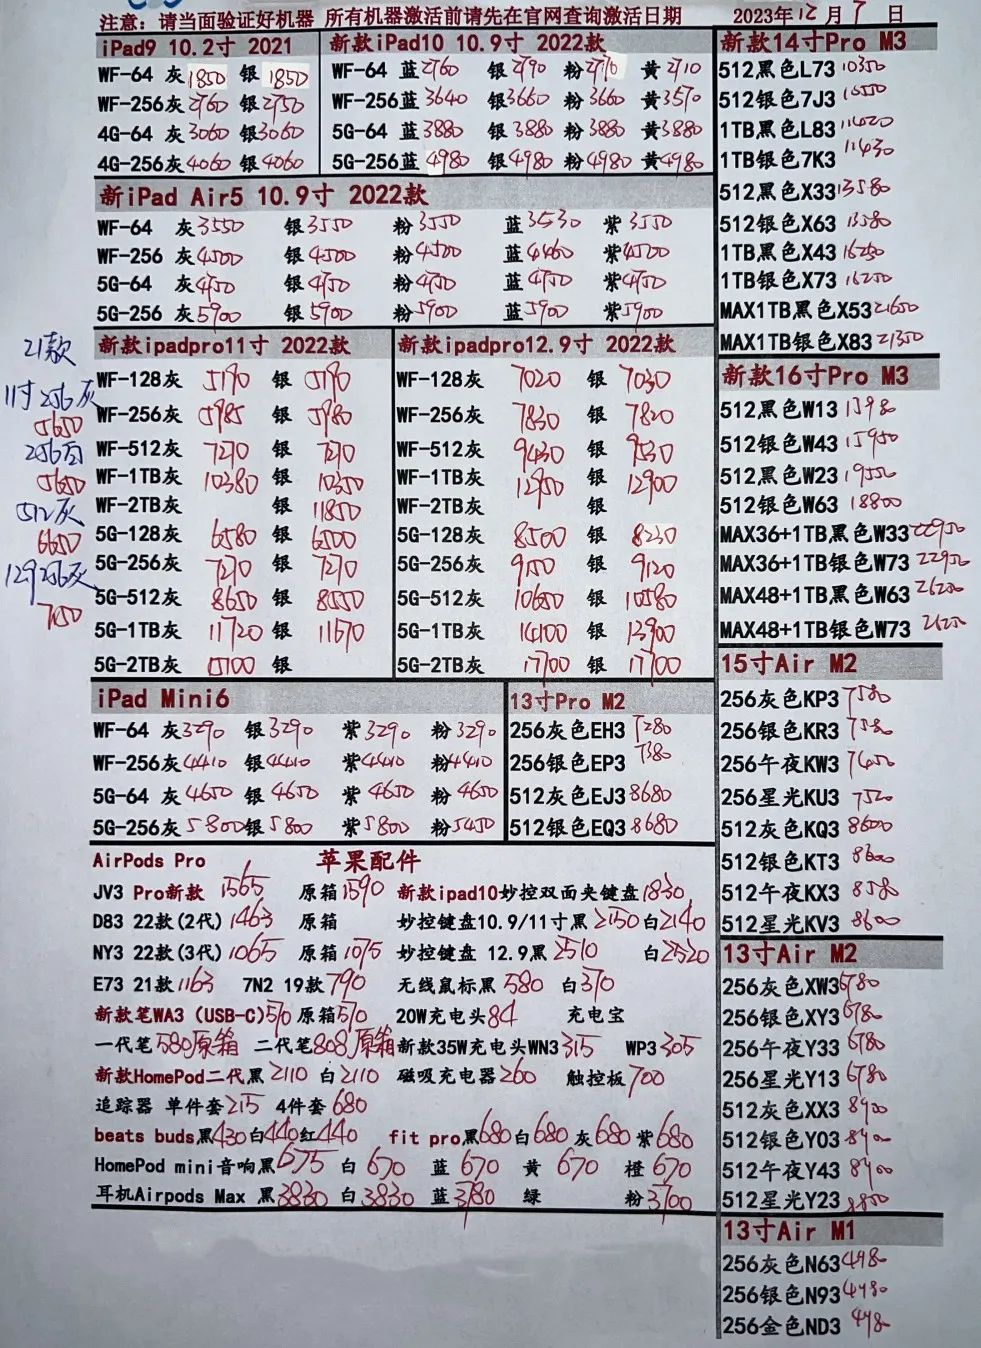 注意：请当面验证好机器 所有机器激活前请先在官网查询激活日期 2023年12月7日
iPad9 10.2寸 2021
WF-64 灰1850 银1850
WF-256灰2760 银2750
4G-64 灰3060 银3060
4G-256灰4060 银4060
新款iPad10 10.9寸 2022款
WF-64 蓝2760 银2790 粉2710 黄2710
WF-256蓝3640 银3660 粉3660 黄3570
5G-64 蓝3880 银3880 粉3880 黄3880
5G-256蓝4980 银4980 粉4980 黄4980
新iPad Air5 10.9寸 2022款
WF-64 灰3550 银3550 粉3550 蓝3530 紫3550
WF-256 灰4500 银4500 粉4500 蓝4460 紫4500
5G-64 灰4750 银4750 粉4750 蓝4750 紫4750
5G-256 灰5900 银5900 粉5900 蓝5900 紫5900
21款
11寸256灰
5650
256
5650
512灰
6650
129 256灰
7150
新款ipadpro11寸 2022款
WF-128灰 5190 银 5190
WF-256灰 5985 银 5980
WF-512灰 7270 银 7270
WF-1TB灰 10380 银 10350
WF-2TB灰 银 11850
5G-128灰 6580 银 6500
5G-256灰 7270 银 7270
5G-512灰 8650 银 8550
5G-1TB灰 11720 银 11670
5G-2TB灰 15100 银
新款ipadpro12.9寸 2022款
WF-128灰 7020 银 7030
WF-256灰 7830 银 7820
WF-512灰 9430 银 9530
WF-1TB灰 12950 银 12900
WF-2TB灰 银
5G-128灰 8500 银 8230
5G-256灰 9150 银 9120
5G-512灰 10650 银 10580
5G-1TB灰 14100 银 13900
5G-2TB灰 17700 银 17700
iPad Mini6
WF-64 灰3290 银3290 紫3290 粉3290
WF-256灰4410 银4410 紫4410 粉4410
5G-64 灰4650 银4650 紫4650 粉4650
5G-256灰5800银5800 紫5800 粉5450
13寸Pro M2
256灰色EH3 7280
256银色EP3 7380
512灰色EJ3 8680
512银色EQ3 8680
AirPods Pro 苹果配件
JV3 Pro新款 1565 原箱1590 新款ipad10妙控双面夹键盘1830
D83 22款(2代) 1463 原箱 妙控键盘10.9/11寸黑2150白2140
NY3 22款(3代) 1065 原箱1075 妙控键盘 12.9黑2510 白2520
E73 21款1163 7N2 19款790 无线鼠标黑580 白370
新款笔WA3 (USB-C)570 原箱570 20W充电头84 充电宝
一代笔580原箱 二代笔808原箱新款35W充电头WN3 315 WP3 305
新款HomePod二代黑2110 白2110 磁吸充电器260 触控板700
追踪器 单件套215 4件套680
beats buds黑430白440红440 fit pro黑680白680灰680紫680
HomePod mini音响黑675 白670 蓝670 黄670 橙670
耳机Airpods Max 黑3830 白3830 蓝3780 绿 粉3700
新款14寸Pro M3
512黑色L73 10350
512银色7J3
1TB黑色L83
1TB银色7K3 11430
512黑色X33 13580
512银色X63 13580
1TB黑色X43 16250
1TB银色X73 16250
MAX1TB黑色X53 21650
MAX1TB银色X83 21350
新款16寸Pro M3
512黑色W13
512银色W43 15950
512黑色W23 19550
512银色W63 18800
MAX36+1TB黑色W33 22950
MAX36+1TB银色W73 22950
MAX48+1TB黑色W63 26200
MAX48+1TB银色W73
15寸Air M2
256灰色KP3 7580
256银色KR3 7580
256午夜KW3 7450
256星光KU3 7520
512灰色KQ3 8600
512银色KT3 8600
512午夜KX3 8580
512星光KV3 8600
13寸Air M2
256灰色XW3 6780
256银色XY3 6780
256午夜Y33 6780
256星光Y13 6780
512灰色XX3 8400
512银色Y03 8400
512午夜Y43 8400
512星光Y23
13寸Air M1
256灰色N63
256银色N93
256金色ND3